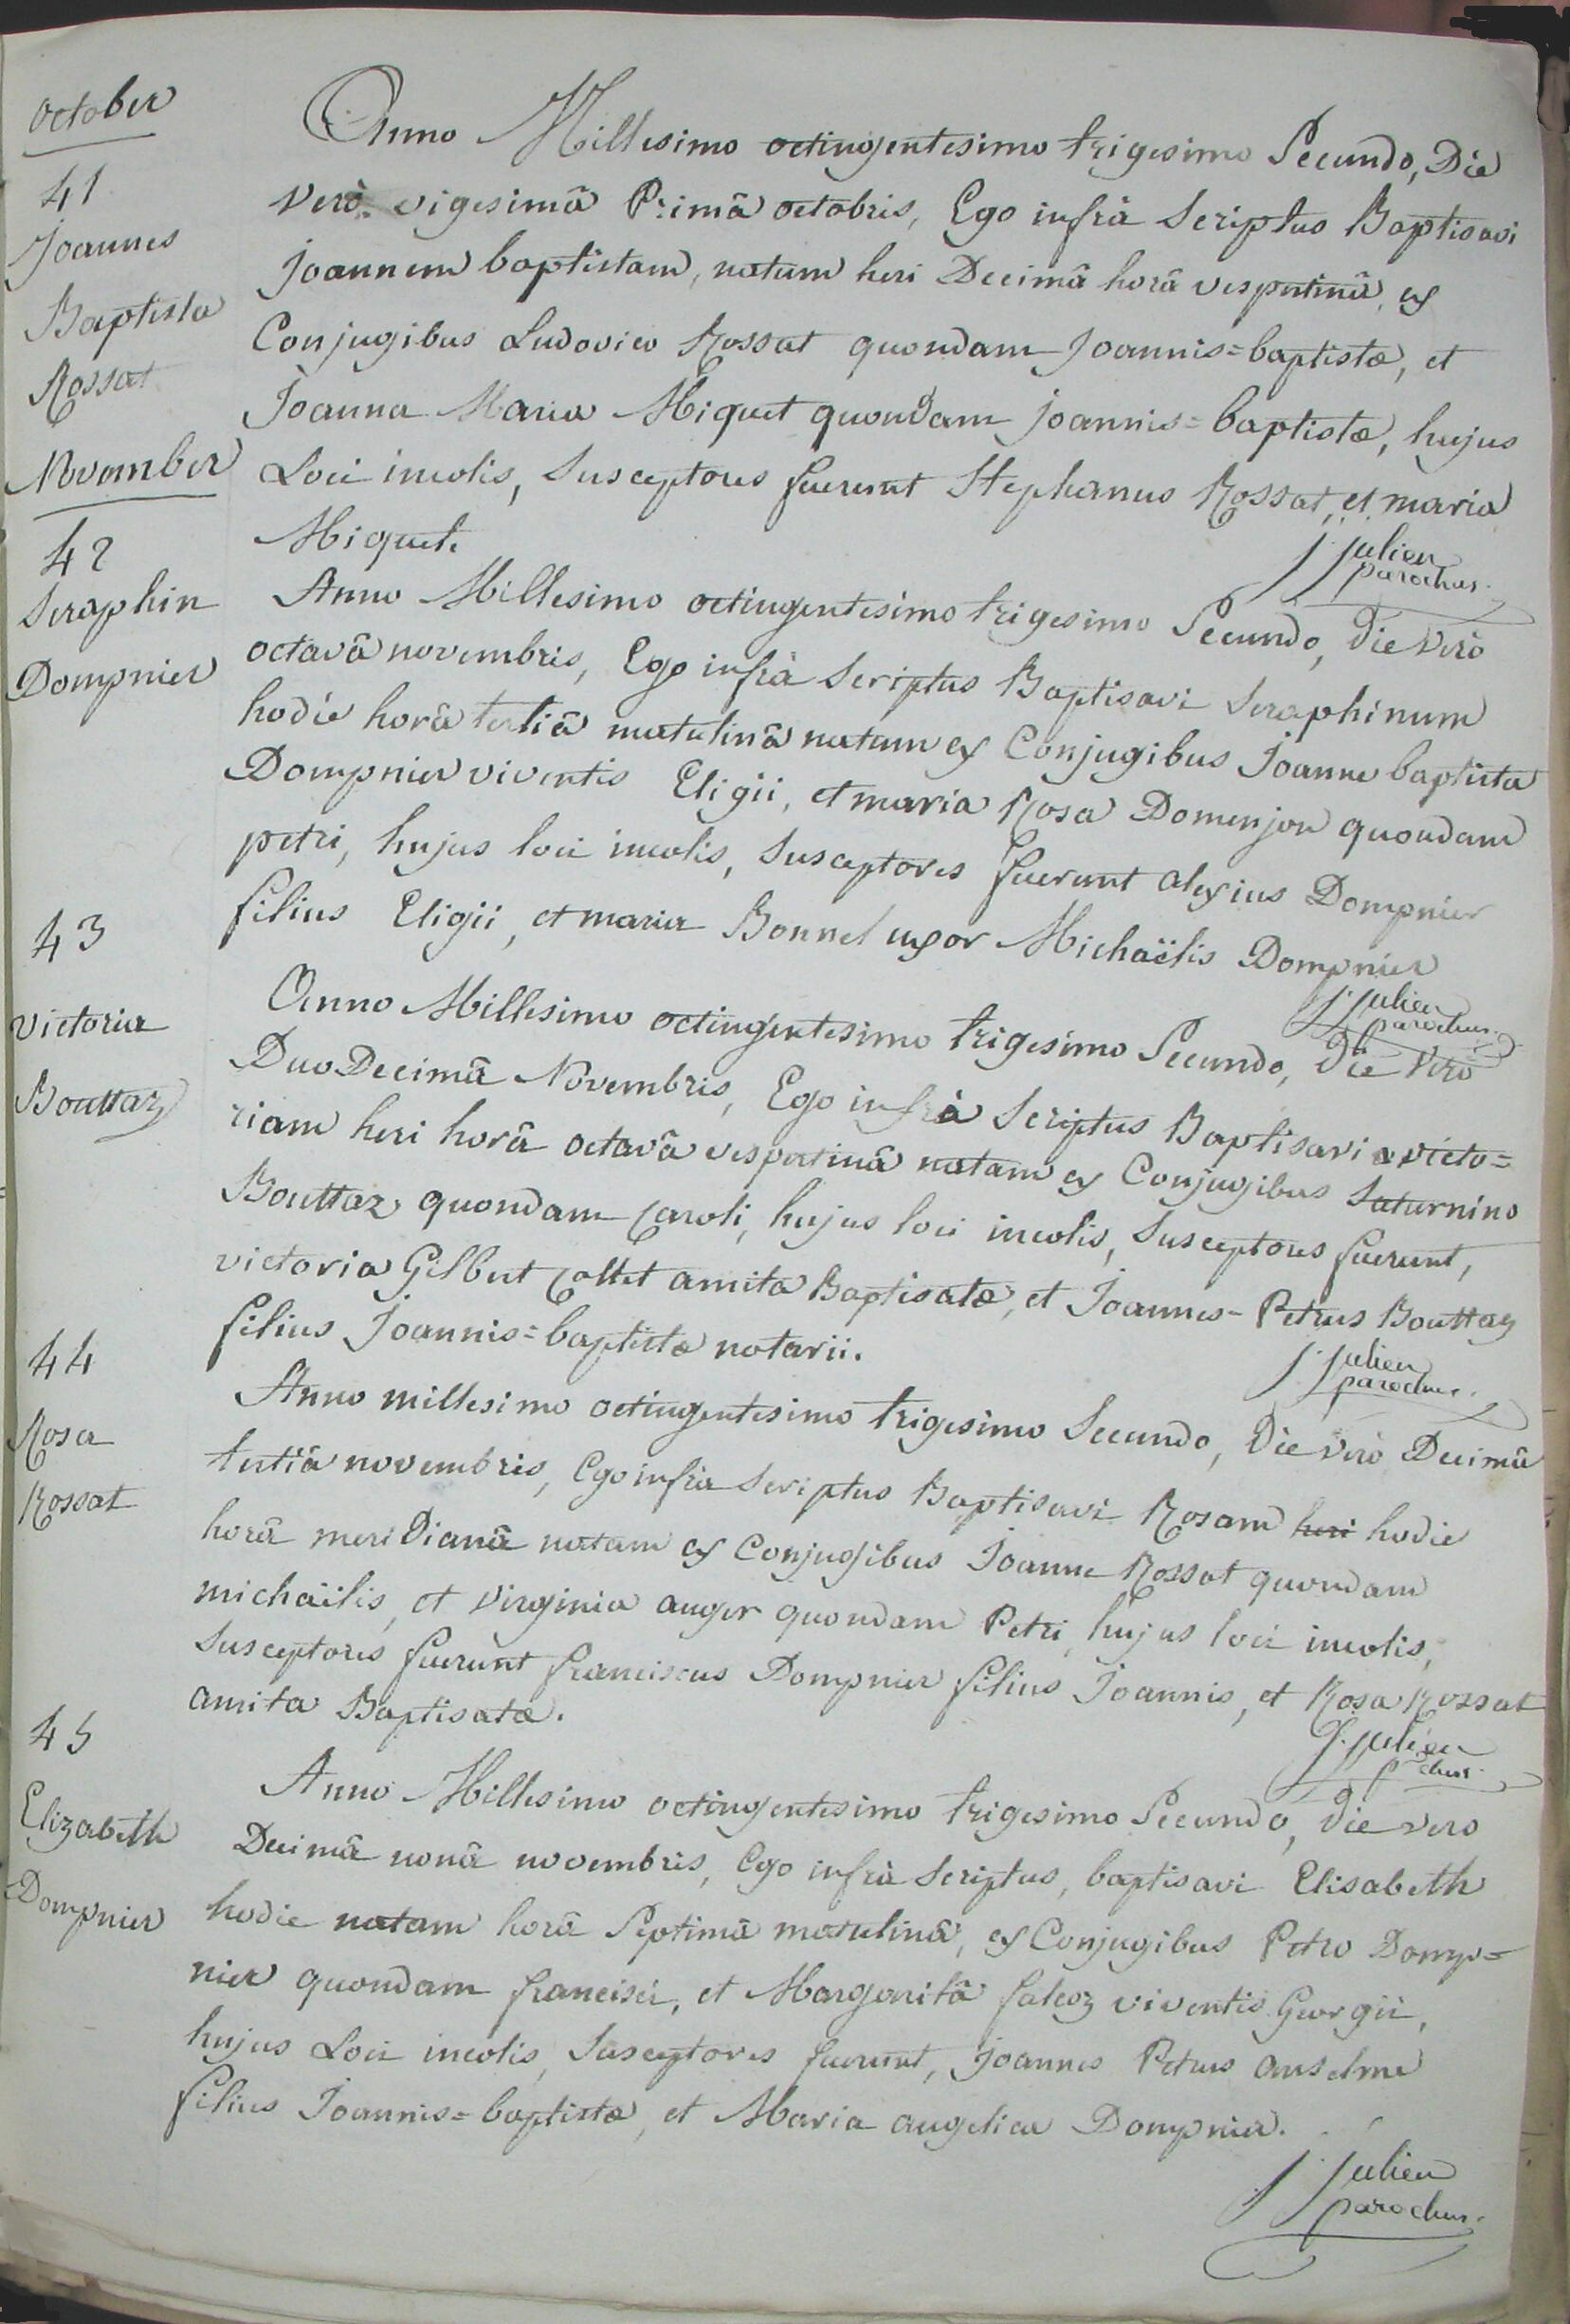 October
41
Joannes
Baptista
Rossat
Anno Millesimo octingentesimo trigesimo Secundo, Die
verò vigesimâ Primâ octobris, Ego infrà Scriptus Baptisavi
Joannem baptistam, natum heri Decimâ horâ vespertinâ, ex
Conjugibus Ludovico Rossat quondam Joannis=baptistæ, et
Joanna Maria Miquet quondam Joannis=baptistæ, hujus
Loci incolis, Susceptores fuerunt Stephanus Rossat, et maria
Miquet.
J. Julien
parochus.
November
42
Seraphin
Dompnier
Anno Millesimo octingentesimo trigesimo Secundo, Die verò
octavâ novembris, Ego infrà Scriptus Baptisavi Seraphinum
hodie horâ tertiâ matutinâ natum ex Conjugibus Joanne baptista
Dompnier viventis Eligii, et maria Rosa Domenjon quondam
petri, hujus loci incolis, Susceptores fuerunt alexius Dompnier
filius Eligii, et maria Bonnel uxor Michaëlis Dompnier
J. Julien
parochus.
43
Victoria
Bouttaz
Anno Millesimo octingentesimo trigesimo Secundo, Die verò
DuoDecimâ Novembris, Ego infrà Scriptus Baptisavi victo=
riam heri horâ octavâ vespertinâ natam ex Conjugibus Saturnino
Bouttaz quondam Caroli, hujus loci incolis, Susceptores fuerunt,
victoria Gilbert Collet amita Baptisatæ, et Joannes=Petrus Bouttaz
filius Joannis=baptistæ notarii.
J. Julien
parochus.
44
Rosa
Rossat
Anno millesimo octingentesimo trigesimo Secundo, Die verò Decimâ
tertiâ novembris, Ego infrà Scriptus Baptisavi Rosam heri hodie
horâ meriDianâ natam ex Conjugibus Joanne Rossat quondam
michaëlis, et Virginia auger quondam Petri, hujus loci incolis,
Susceptores fuerunt franciscus Dompnier filius Joannis, et Rosa Rossat
amita Baptisatæ.
J. Julien
pchus.
45
Elizabeth
Dompnier
Anno Millesimo octingentesimo trigesimo Secundo, Die vero
Decimâ nonâ novembris, Ego infrà Scriptus, baptisavi Elisabeth
hodie natam horâ Septimâ matutinâ, ex Conjugibus Petro Domp=
nier quondam francisci, et Margaritâ falcoz viventis Georgii,
hujus Loci incolis, Susceptores fuerunt, Joannes Petrus anselme
filius Joannis=baptistæ, et Maria angelica Dompnier.
J. Julien
parochus.